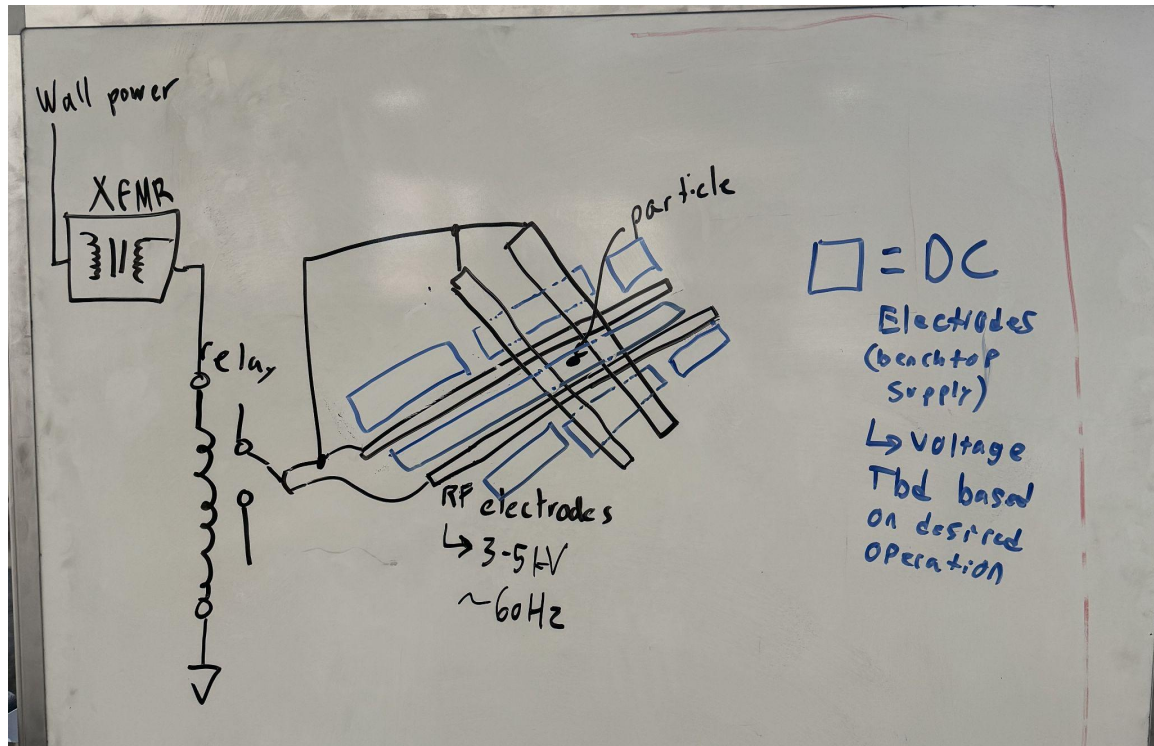 Wall power
XFMR
relay
particle
RF electrodes
↳ 3-5kV
~60Hz
□ = DC
Electrodes
(benchtop
supply)
↳ Voltage
Tbd based
on desired
operation